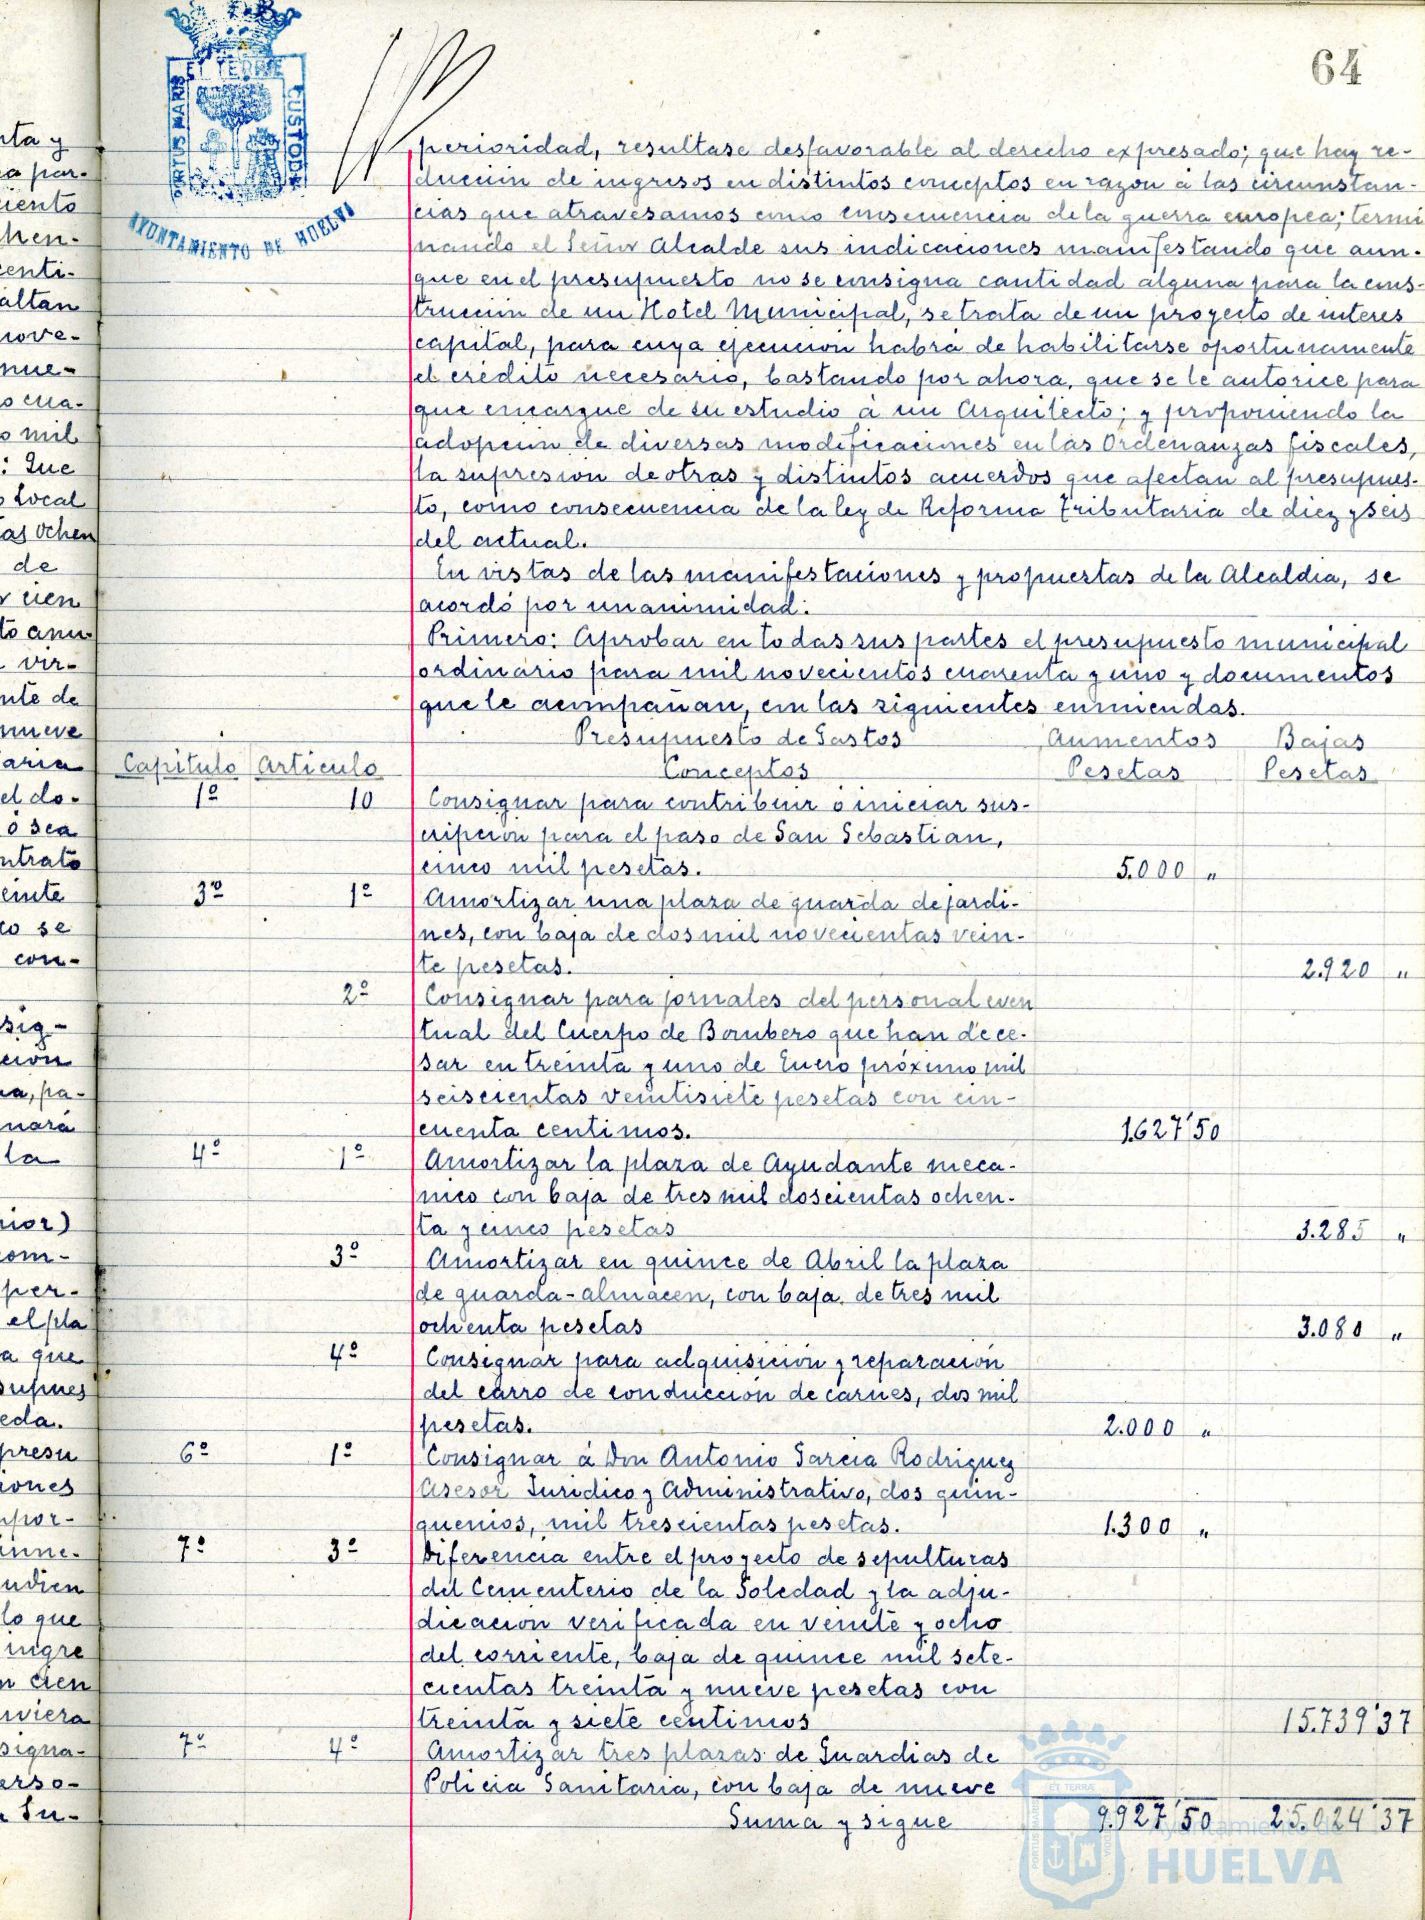 64
PORTUS MARIS ET TERRÆ CUSTODIA
AYUNTAMIENTO DE HUELVA
perioridad, resultase desfavorable al derecho expresado; que hay re-
ducción de ingresos en distintos conceptos en razon á las circunstan-
cias que atravesamos como consecuencia de la guerra europea; termi
nando el Señor Alcalde sus indicaciones manifestando que aun-
que en el presupuesto no se consigna cantidad alguna para la cons-
trucción de un Hotel Municipal, se trata de un proyecto de interes
capital, para cuya ejecucion habrá de habilitarse oportunamente
el crédito necesario, bastando por ahora, que se le autorice para
que encargue de su estudio á un Arquitecto; y proponiendo la
adopción de diversas modificaciones en las Ordenanzas fiscales,
la supresion de otras y distintos acuerdos que afectan al presupues-
to, como consecuencia de la ley de Reforma Tributaria de diez y seis
del actual.
En vistas de las manifestaciones y propuestas de la Alcaldia, se
acordó por unanimidad:
Primero: Aprobar en todas sus partes el presupuesto municipal
ordinario para mil novecientos cuarenta y uno y documentos
que le acompañan, con las siguientes enmiendas.
Presupuesto de Gastos Aumentos Bajas
Capítulo Artículo Conceptos Pesetas Pesetas
1º 10 Consignar para contribuir ó iniciar sus-
cripcion para el paso de San Sebastian,
cinco mil pesetas. 5.000 "
3º 1º Amortizar una plaza de guarda de jardi-
nes, con baja de dos mil novecientas vein-
te pesetas. 2.920 "
2º Consignar para jornales del personal even
tual del Cuerpo de Bombero que han de ce-
sar en treinta y uno de Enero próximo mil
seiscientas veintisiete pesetas con cin-
cuenta centimos. 1.627'50
4º 1º Amortizar la plaza de Ayudante meca-
nico con baja de tres mil doscientas ochen-
ta y cinco pesetas 3.285 "
3º Amortizar en quince de Abril la plaza
de guarda-almacen, con baja de tres mil
ochenta pesetas 3.080 "
4º Consignar para adquisición y reparación
del carro de conducción de carnes, dos mil
pesetas. 2.000 "
6º 1º Consignar á Don Antonio Garcia Rodriguez
Asesor Juridico y Administrativo, dos quin-
quenios, mil trescientas pesetas. 1.300 "
7º 3º Diferencia entre el proyecto de sepulturas
del Cementerio de la Soledad y la adju-
dicación verificada en veinte y ocho
del corriente, baja de quince mil sete-
cientas treinta y nueve pesetas con
treinta y siete centimos 15.739'37
7º 4º Amortizar tres plazas de Guardias de
Policia Sanitaria, con baja de nueve
Suma y sigue 9.927'50 25.024'37
Ayuntamiento de
HUELVA